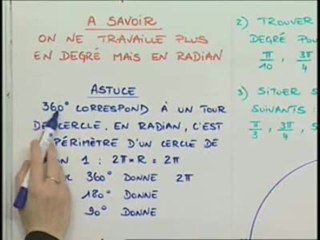 A SAVOIR
ON NE TRAVAILLE PLUS
EN DEGRÉ MAIS EN RADIAN
ASTUCE
360° CORRESPOND À UN TOUR
DE CERCLE, EN RADIAN, C'EST
PÉRIMÈTRE D'UN CERCLE DE
1 : 2π×R = 2π
360° DONNE 2π
180° DONNE
90° DONNE
2) TROUVER
DEGRÉ
π/10, 3π/4
3) SITUER
SUIVANTS
π/3, 3π/4,